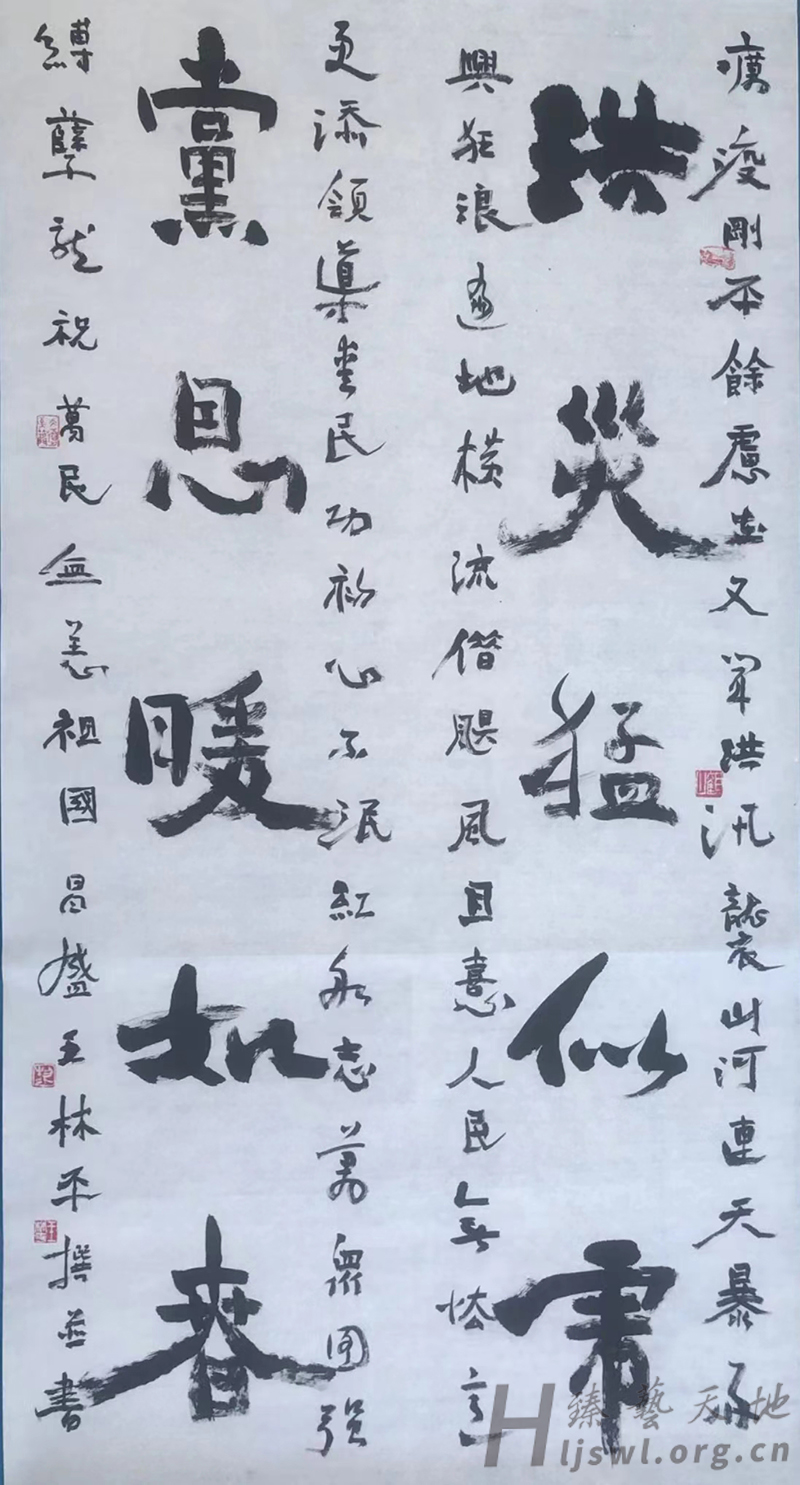 癘疫剛平餘慮在又聞洪汛襲山河連天暴雨
洪災猛似虎
興狂浪遍地橫流借颶風且喜人民無怯意
更添領導愛民功初心不泯紅船志萬眾強
黨恩暖如春
縛孽龍祝萬民無恙祖國昌盛王林平撰並書
臻藝天地
Hljswl.org.cn